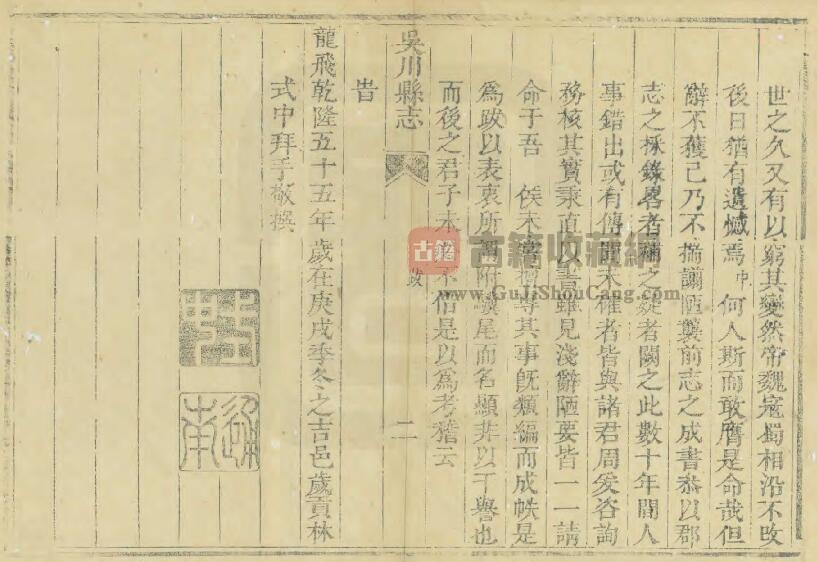 世之久又有以窮其變然帝魏寇蜀相沿不改
後日猶有遺憾焉中何人斯而敢膺是命哉但
辭不獲已乃不揣譾陋襲前志之成書恭以郡
志之採錄畧者補之疑者闕之此數十年間人
事錯出或有傳聞未確者皆與諸君周爰咨詢
務核其實秉直以書雖見淺辭陋要皆一一請
命于吾 侯末 其事旣類編而成帙是
爲跋以表衷所 附驥尾而名顯非以干譽也
而後之君子未 不 是以爲考稽云
吳川縣志
跋
二
旹
龍飛乾隆五十五年歲在庚戌季冬之吉邑歲貢林
式中拜手敬撰
古籍
古籍收藏網
www.GuJiShouCang.com